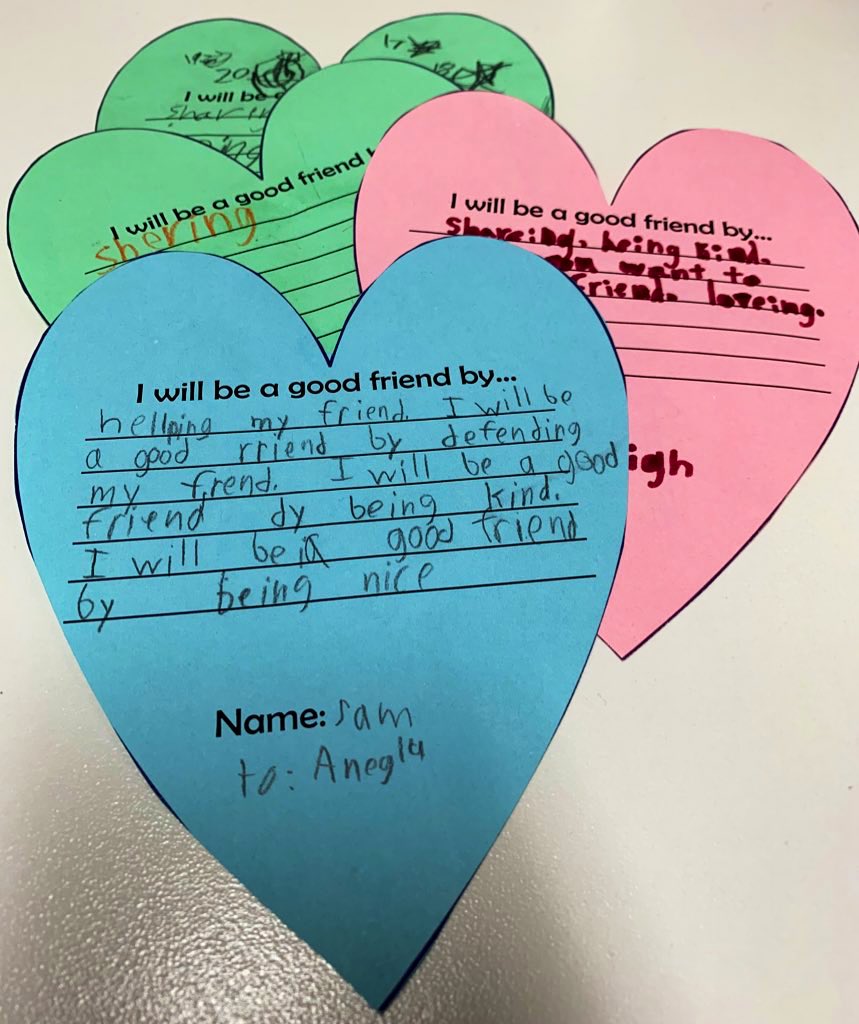 20
I will be
sharing
I will be a good friend
shering
I will be a good friend by...
shareing, being kind.
want to
friend. loveing.
igh
I will be a good friend by...
hellping my friend. I will be
a good rriend by defending
my frend. I will be a good
friend dy being kind.
I will be a good friend
by being nice
Name: Sam
to: